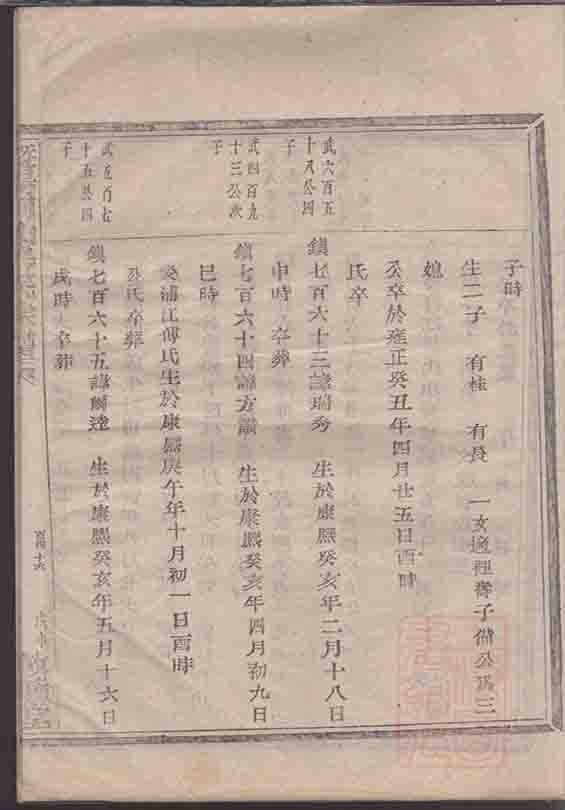 子時
生二子 有桂 有長 一女適裡壽子備公爲三
媳
公卒於雍正癸丑年四月廿五日酉時
氏卒
武六百五
十八公四
子
鎮七百六十三諱瑞秀 生於康熙癸亥年二月十八日
申時 卒葬
武四百九
十三公次
子
鎮七百六十四諱方 生於康熙癸亥年四月初九日
巳時
娶浦江傅氏生於康熙庚午年十月初一日酉時
公氏卒葬
武五百七
十五公四
子
鎮七百六十五諱爾達 生於康熙癸亥年五月十六日
戌時 卒葬